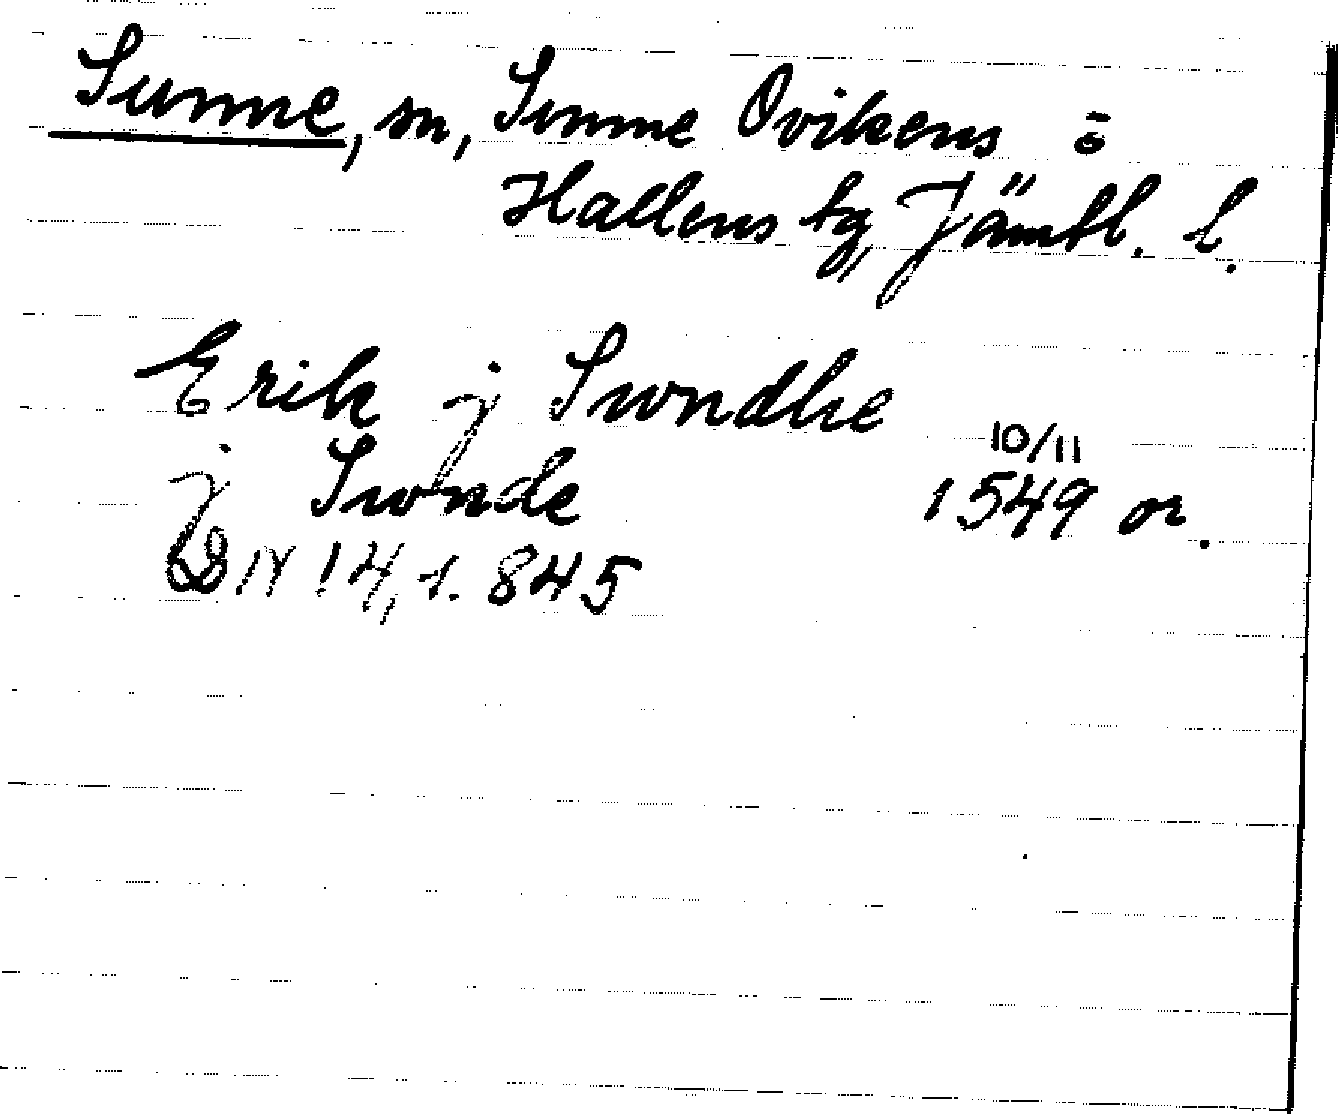 Sunne, sn, Sunne Ovikens o
Hallens tg, Jämtl. l.
Erik j Swndhe
j Swnde
10/11
1549 or.
DN 14, s. 845